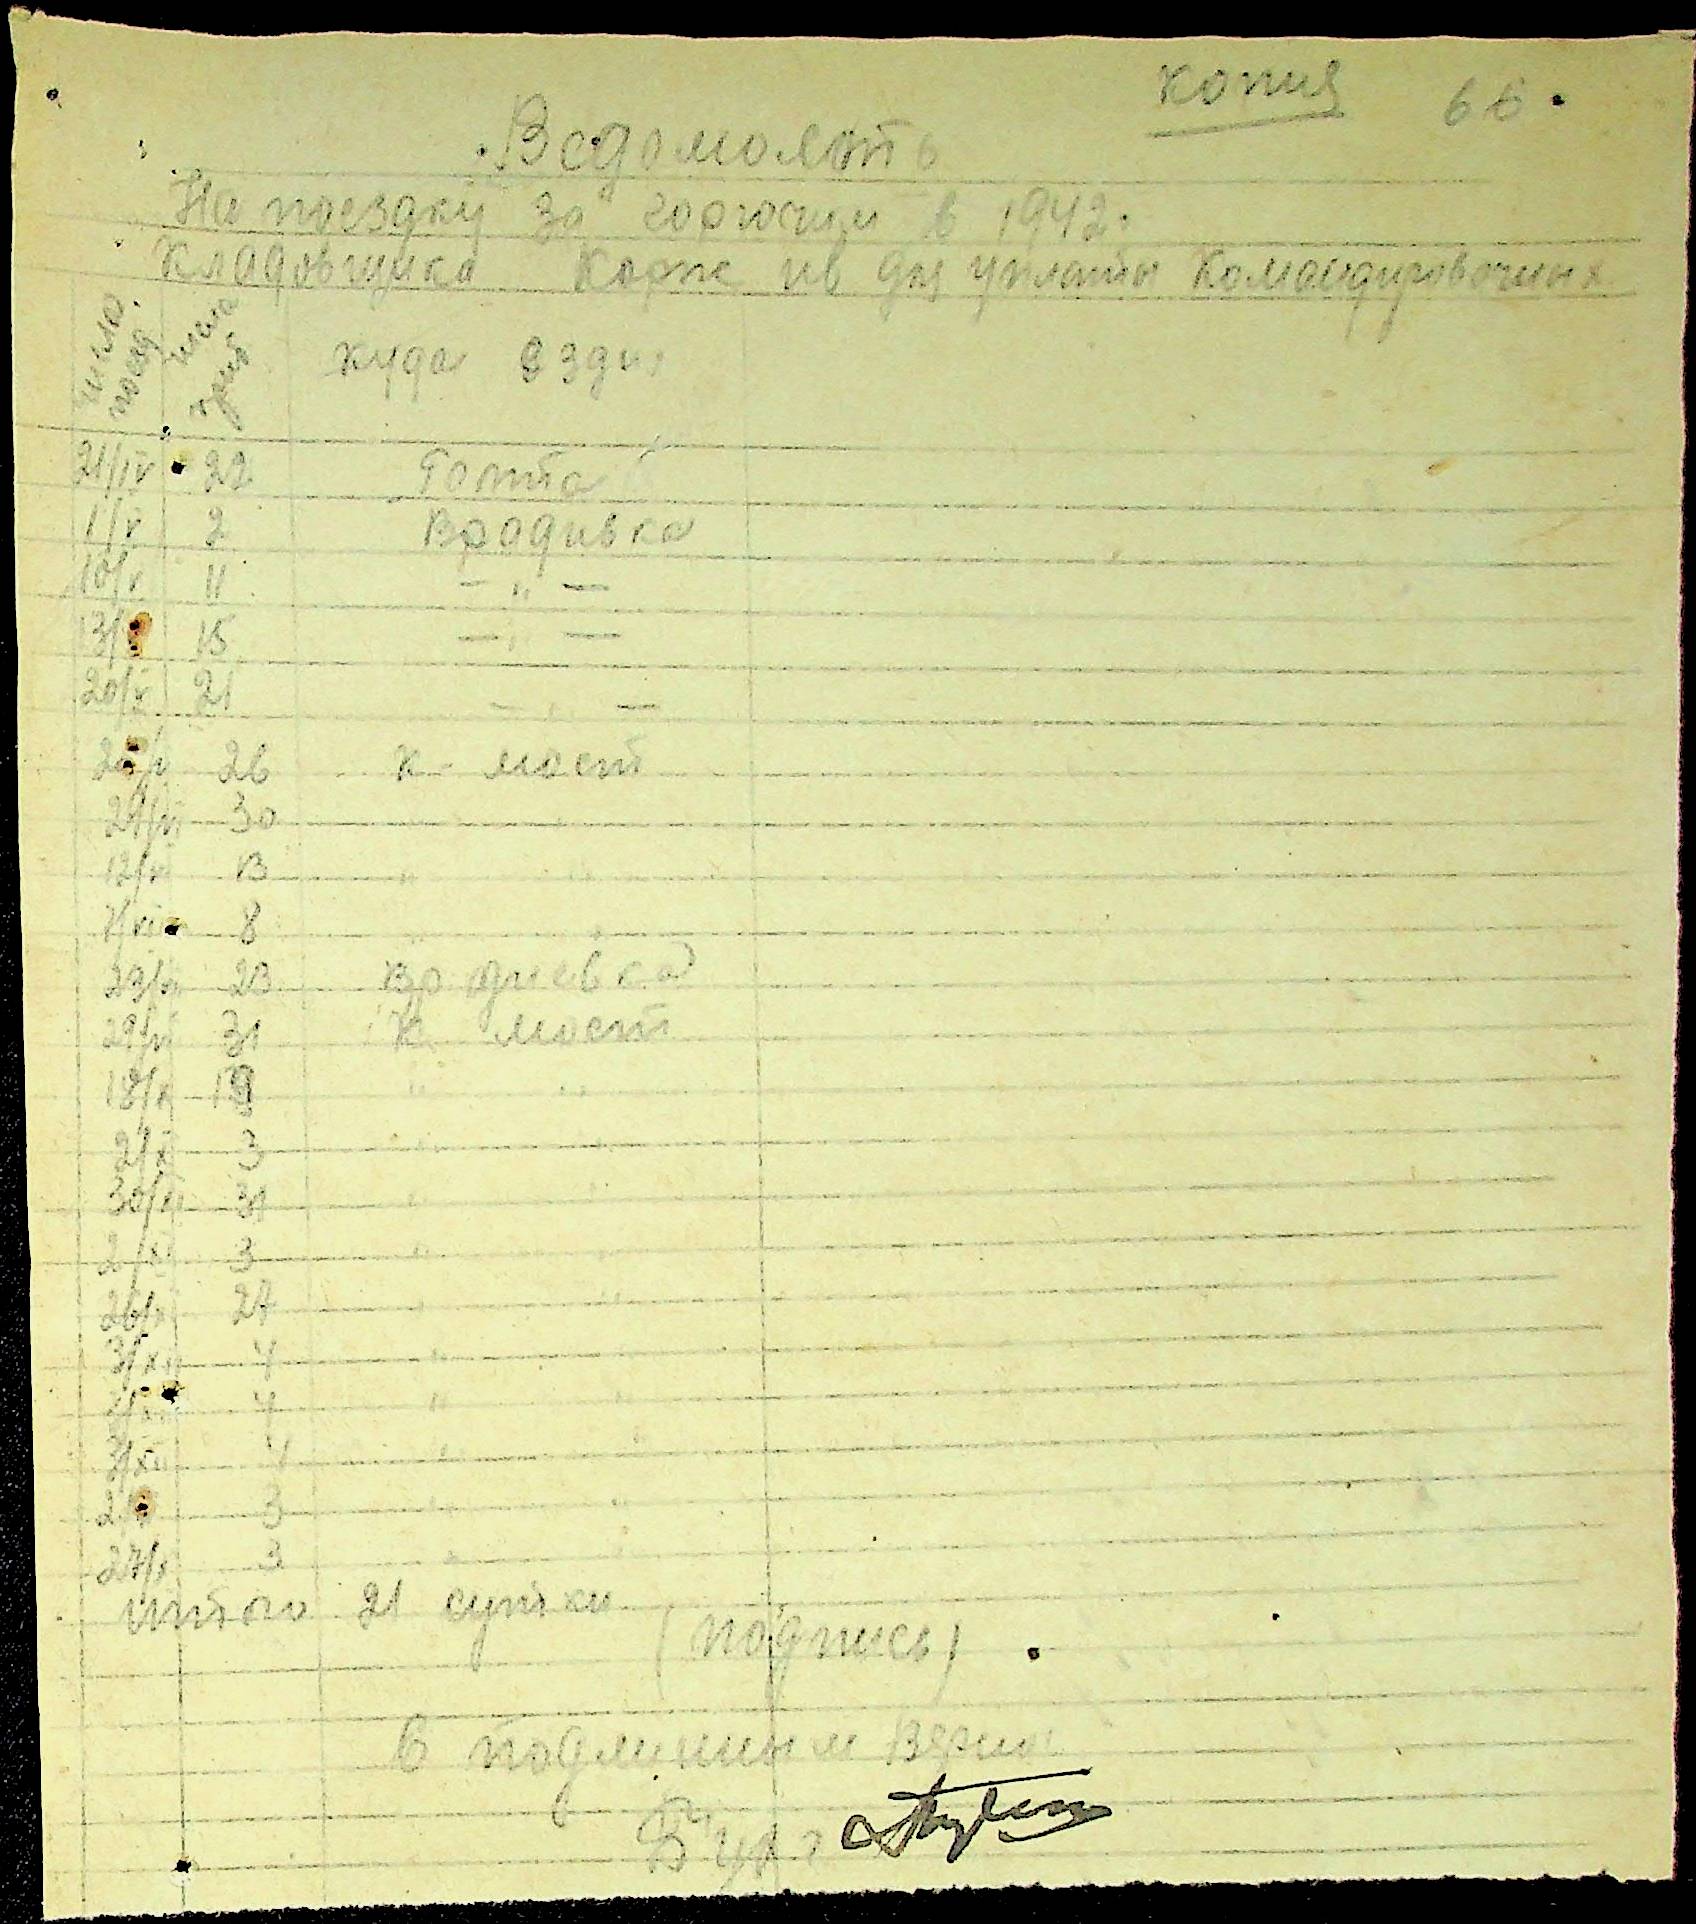 копия 66.
Ведомость
На поездку за горючим в 1942.
Кладовщика Корж Ив для уплаты Командировочных
число поезд число приб куда езди
21/IV 22 Голта
1/V 2 Врадивка
10/V 11 — „ —
13/ 15 — „ —
20/V 21 — „ —
26 К- мост
30
12/ 13 „ „
8 „ „
23/ 23 Врадиевка
29/ 31 К. мост
18/X 19 „ „
2/X 3 „ „
30/ 31 „ „
2/XI 3 „ „
26/ 27 „ „
3/XII 4 „ „
4 „ „
3/XII 4 „ „
2/ 3 „ „
27/ 3 „ „
итого 21 сутки
(подпись)
С подлинным верно:
Бух.